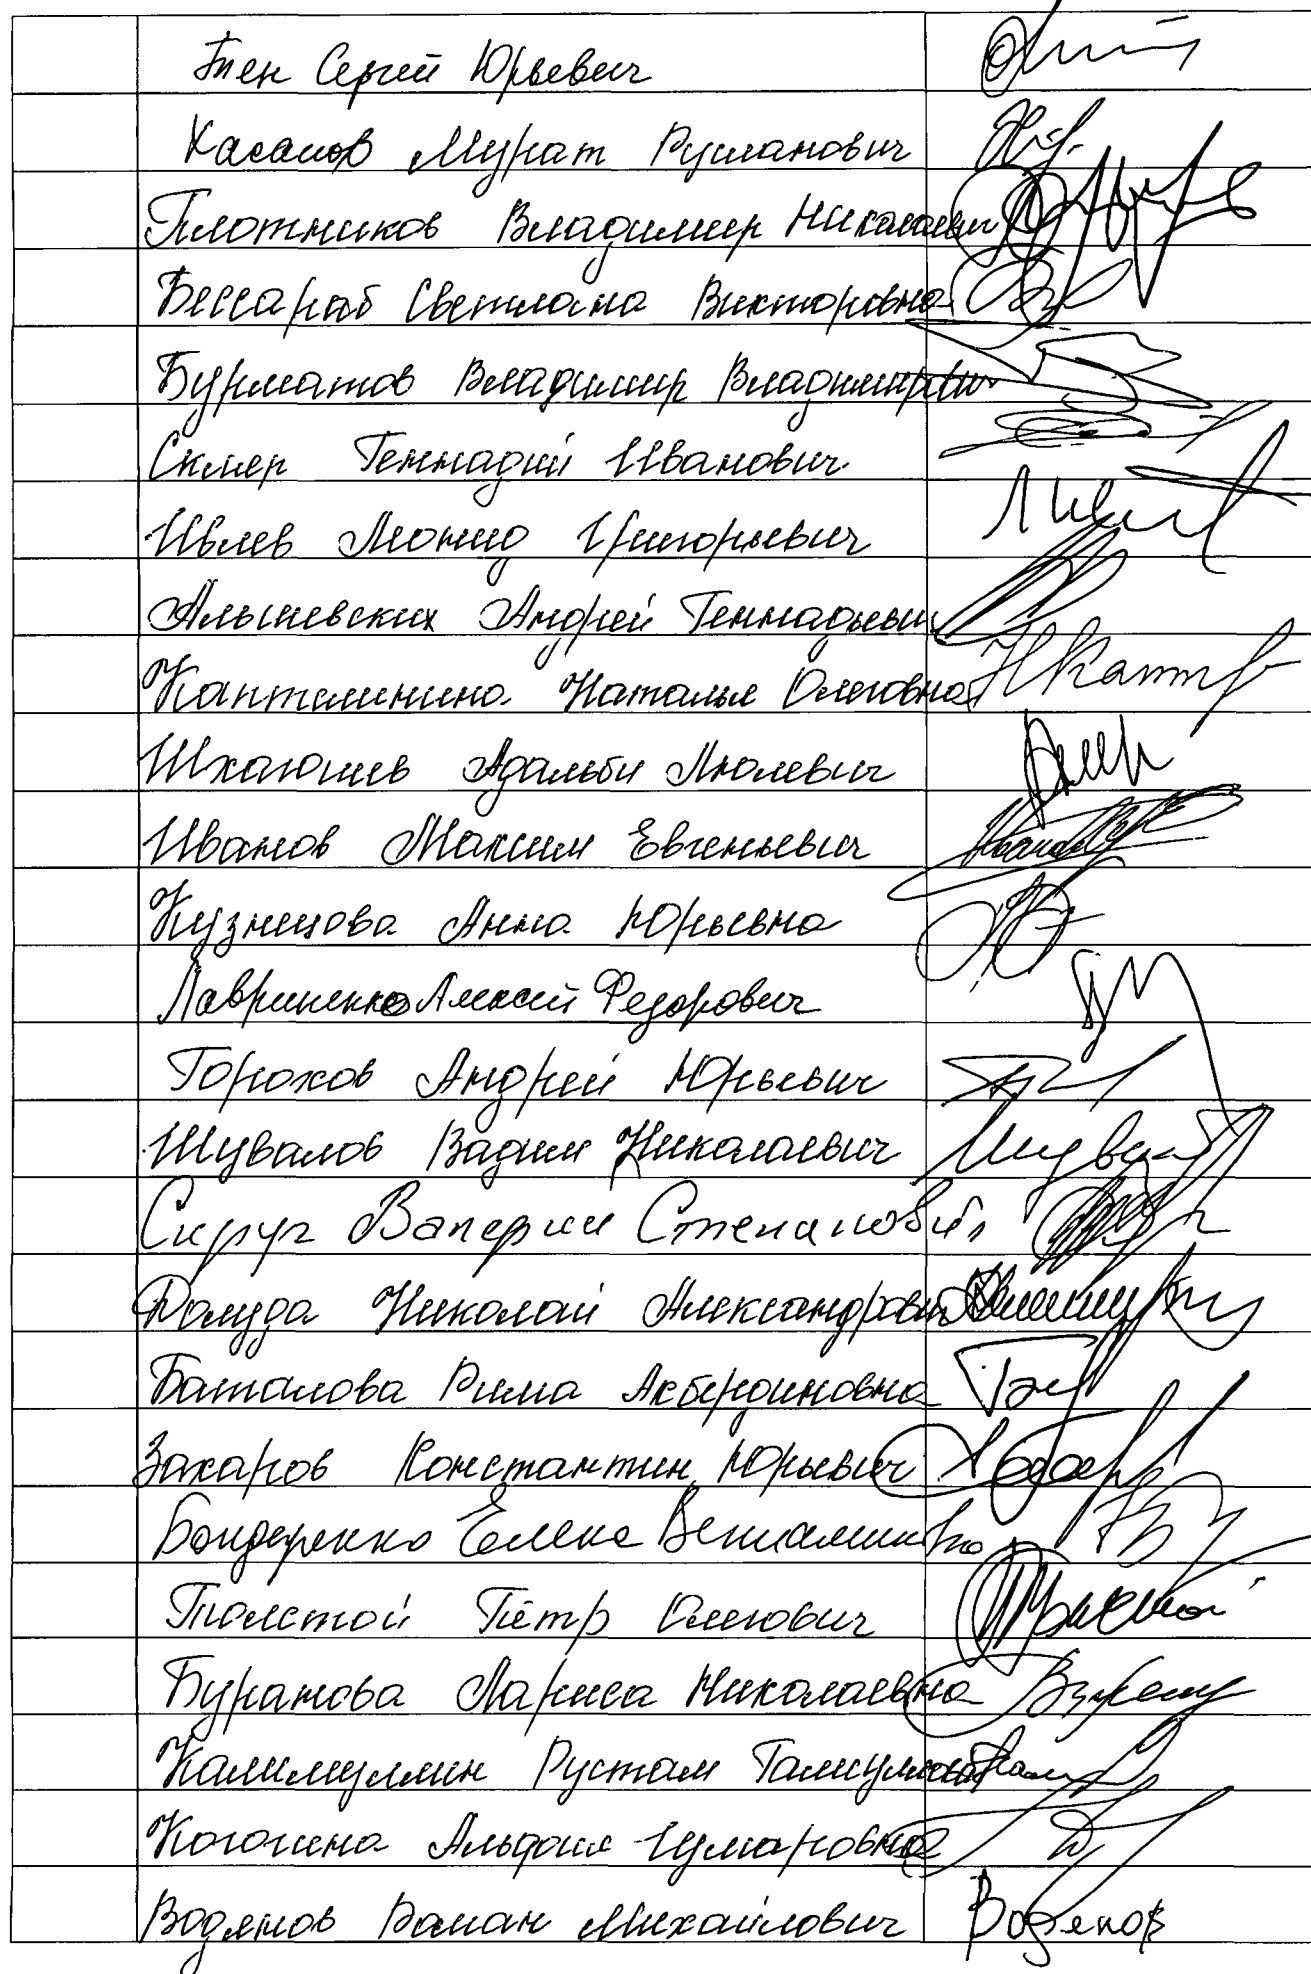 Тен Сергей Юрьевич
Хасанов Мурат Русланович
Плотников Владимир Николаевич
Бессараб Светлана Викторовна
Бурматов Владимир Владимирович
Скляр Геннадий Иванович
Ивлев Леонид Григорьевич
Альшевских Андрей Геннадьевич
Каптелинина Наталья Олеговна
Шхагошев Адальби Люлевич
Иванов Максим Евгеньевич
Кузнецова Анна Юрьевна
Лавриненко Алексей Федорович
Горохов Андрей Юрьевич
Шувалов Вадим Николаевич
Скруг Валерий Степанович
Долуда Николай Александрович
Баталова Рима Акбердиновна
Захаров Константин Юрьевич
Бондаренко Елена Вениаминовна
Толстой Пётр Олегович
Буранова Лариса Николаевна
Калимуллин Рустам Галиуллович
Когогина Альфия Гумаровна
Водянов Роман Михайлович Водянов